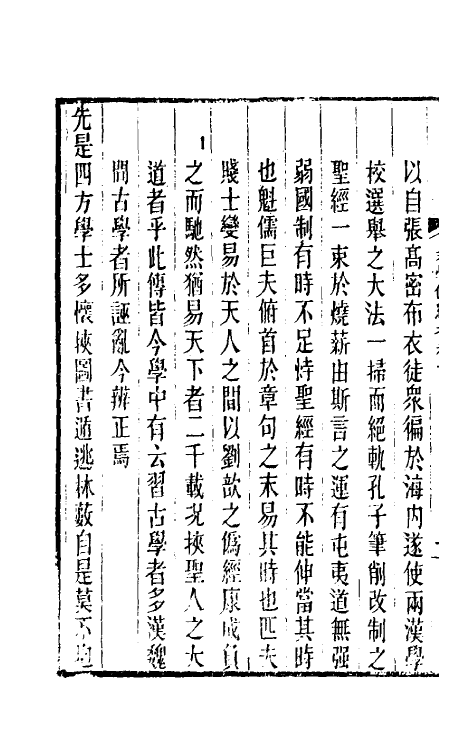 以自張高密布衣徒衆徧於海内遂使兩漢學
校選舉之大法一掃而絕軌孔子筆削改制之
聖經一束於燒薪由斯言之運有屯夷道無强
弱國制有時不足恃聖經有時不能伸當其時
也魁儒巨夫俯首於章句之末易其時也匹夫
賤士變易於天人之間以劉歆之僞經康成負
之而馳然猶易天下者二千載況挾聖人之大
道者乎此傳皆今學中有云習古學者多漢魏
間古學者所誣亂今辨正焉
先是四方學士多懷挾圖書遁逃林藪自是莫不抱